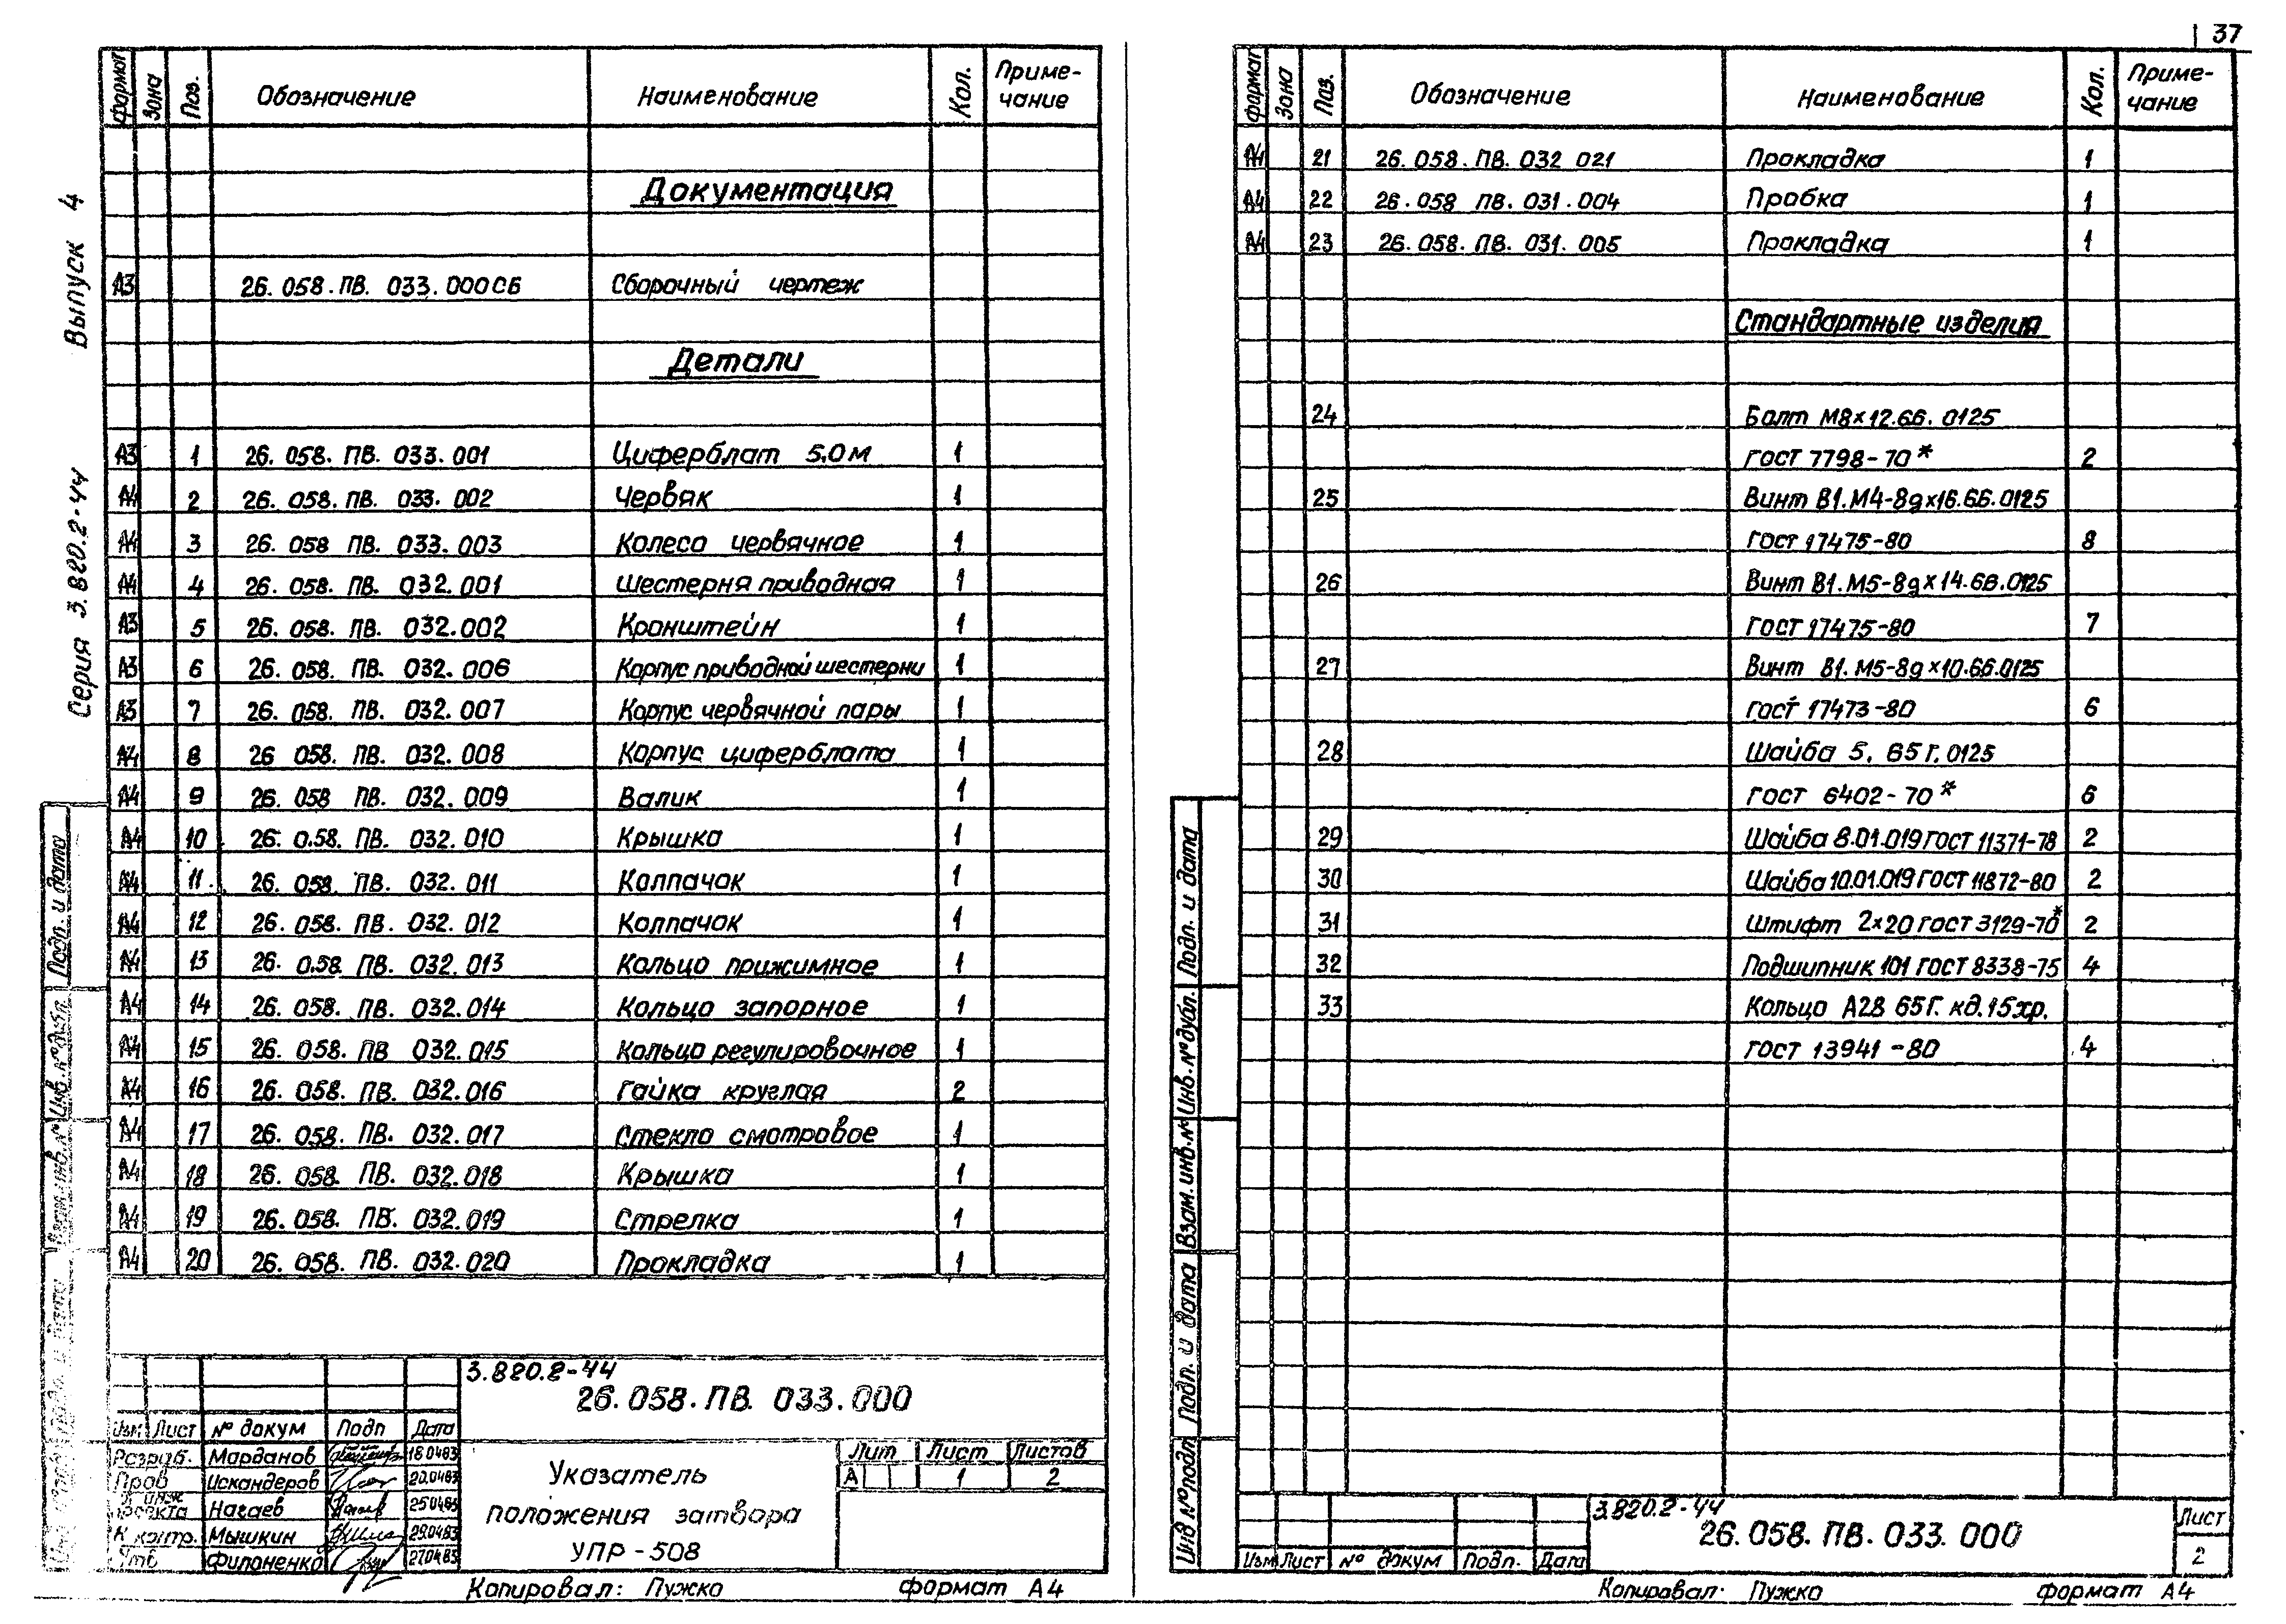 37
Серия 3.820.2-44 Выпуск 4
формат Зона Поз. Обозначение Наименование Кол. Приме-
чание
Документация
А3 26.058.ПВ.033.000СБ Сборочный чертеж
Детали
А3 1 26.058.ПВ.033.001 Циферблат 5.0м 1
А4 2 26.058.ПВ.033.002 Червяк 1
А4 3 26.058 ПВ.033.003 Колесо червячное 1
А4 4 26.058.ПВ.032.001 Шестерня приводная 1
А3 5 26.058.ПВ.032.002 Кронштейн 1
А3 6 26.058.ПВ.032.006 Корпус приводной шестерни 1
А3 7 26.058.ПВ.032.007 Корпус червячной пары 1
А4 8 26 058.ПВ.032.008 Корпус циферблата 1
А4 9 26.058 ПВ.032.009 Валик 1
А4 10 26.0.58.ПВ.032.010 Крышка 1
А4 11 26.058.ПВ.032.011 Колпачок 1
А4 12 26.058.ПВ.032.012 Колпачок 1
А4 13 26.0.58.ПВ.032.013 Кольцо прижимное 1
А4 14 26.058.ПВ.032.014 Кольцо запорное 1
А4 15 26.058.ПВ 032.015 Кольцо регулировочное 1
А4 16 26.058.ПВ.032.016 Гайка круглая 2
А4 17 26.058.ПВ.032.017 Стекло смотровое 1
А4 18 26.058.ПВ.032.018 Крышка 1
А4 19 26.058.ПВ.032.019 Стрелка 1
А4 20 26.058.ПВ.032.020 Прокладка 1
Подп. и дата
Инв.№дубл.
Взам.инв.№
3.820.2-44
26.058.ПВ.033.000
Изм Лист № докум Подп Дата
Разраб. Марданов 180483
Пров Искандеров 20.0483
проекта Нагаев 250483
К контр. Мышкин 29.0483
Утв Филоненко 270483
Указатель
положения затвора
УПР-508
Лит Лист Листов
А 1 2
Копировал: Пужко формат А4
формат Зона Поз. Обозначение Наименование Кол. Приме-
чание
А4 21 26.058.ПВ.032 021 Прокладка 1
А4 22 26.058 ПВ.031.004 Пробка 1
А4 23 26.058.ПВ.031.005 Прокладка 1
Стандартные изделия
24 Болт М8х12.66.0125
ГОСТ 7798-70* 2
25 Винт В1.М4-8gх16.66.0125
ГОСТ 17475-80 8
26 Винт В1.М5-8gх14.66.0125
ГОСТ 17475-80 7
27 Винт В1.М5-8gх10.66.0125
ГОСТ 17473-80 6
28 Шайба 5.65Г.0125
ГОСТ 6402-70* 6
29 Шайба 8.01.019 ГОСТ 11371-78 2
30 Шайба 10.01.019 ГОСТ 11872-80 2
31 Штифт 2х20 ГОСТ 3129-70* 2
32 Подшипник 101 ГОСТ 8338-75 4
33 Кольцо А28 65Г.кд.15хр.
ГОСТ 13941-80 4
Подп. и дата
Инв.№дубл.
Взам.инв.№
Подп. и дата
Инв №подл
3.820.2-44
26.058.ПВ.033.000
Лист
2
Изм Лист № докум Подп. Дата
Копировал: Пужко формат А4